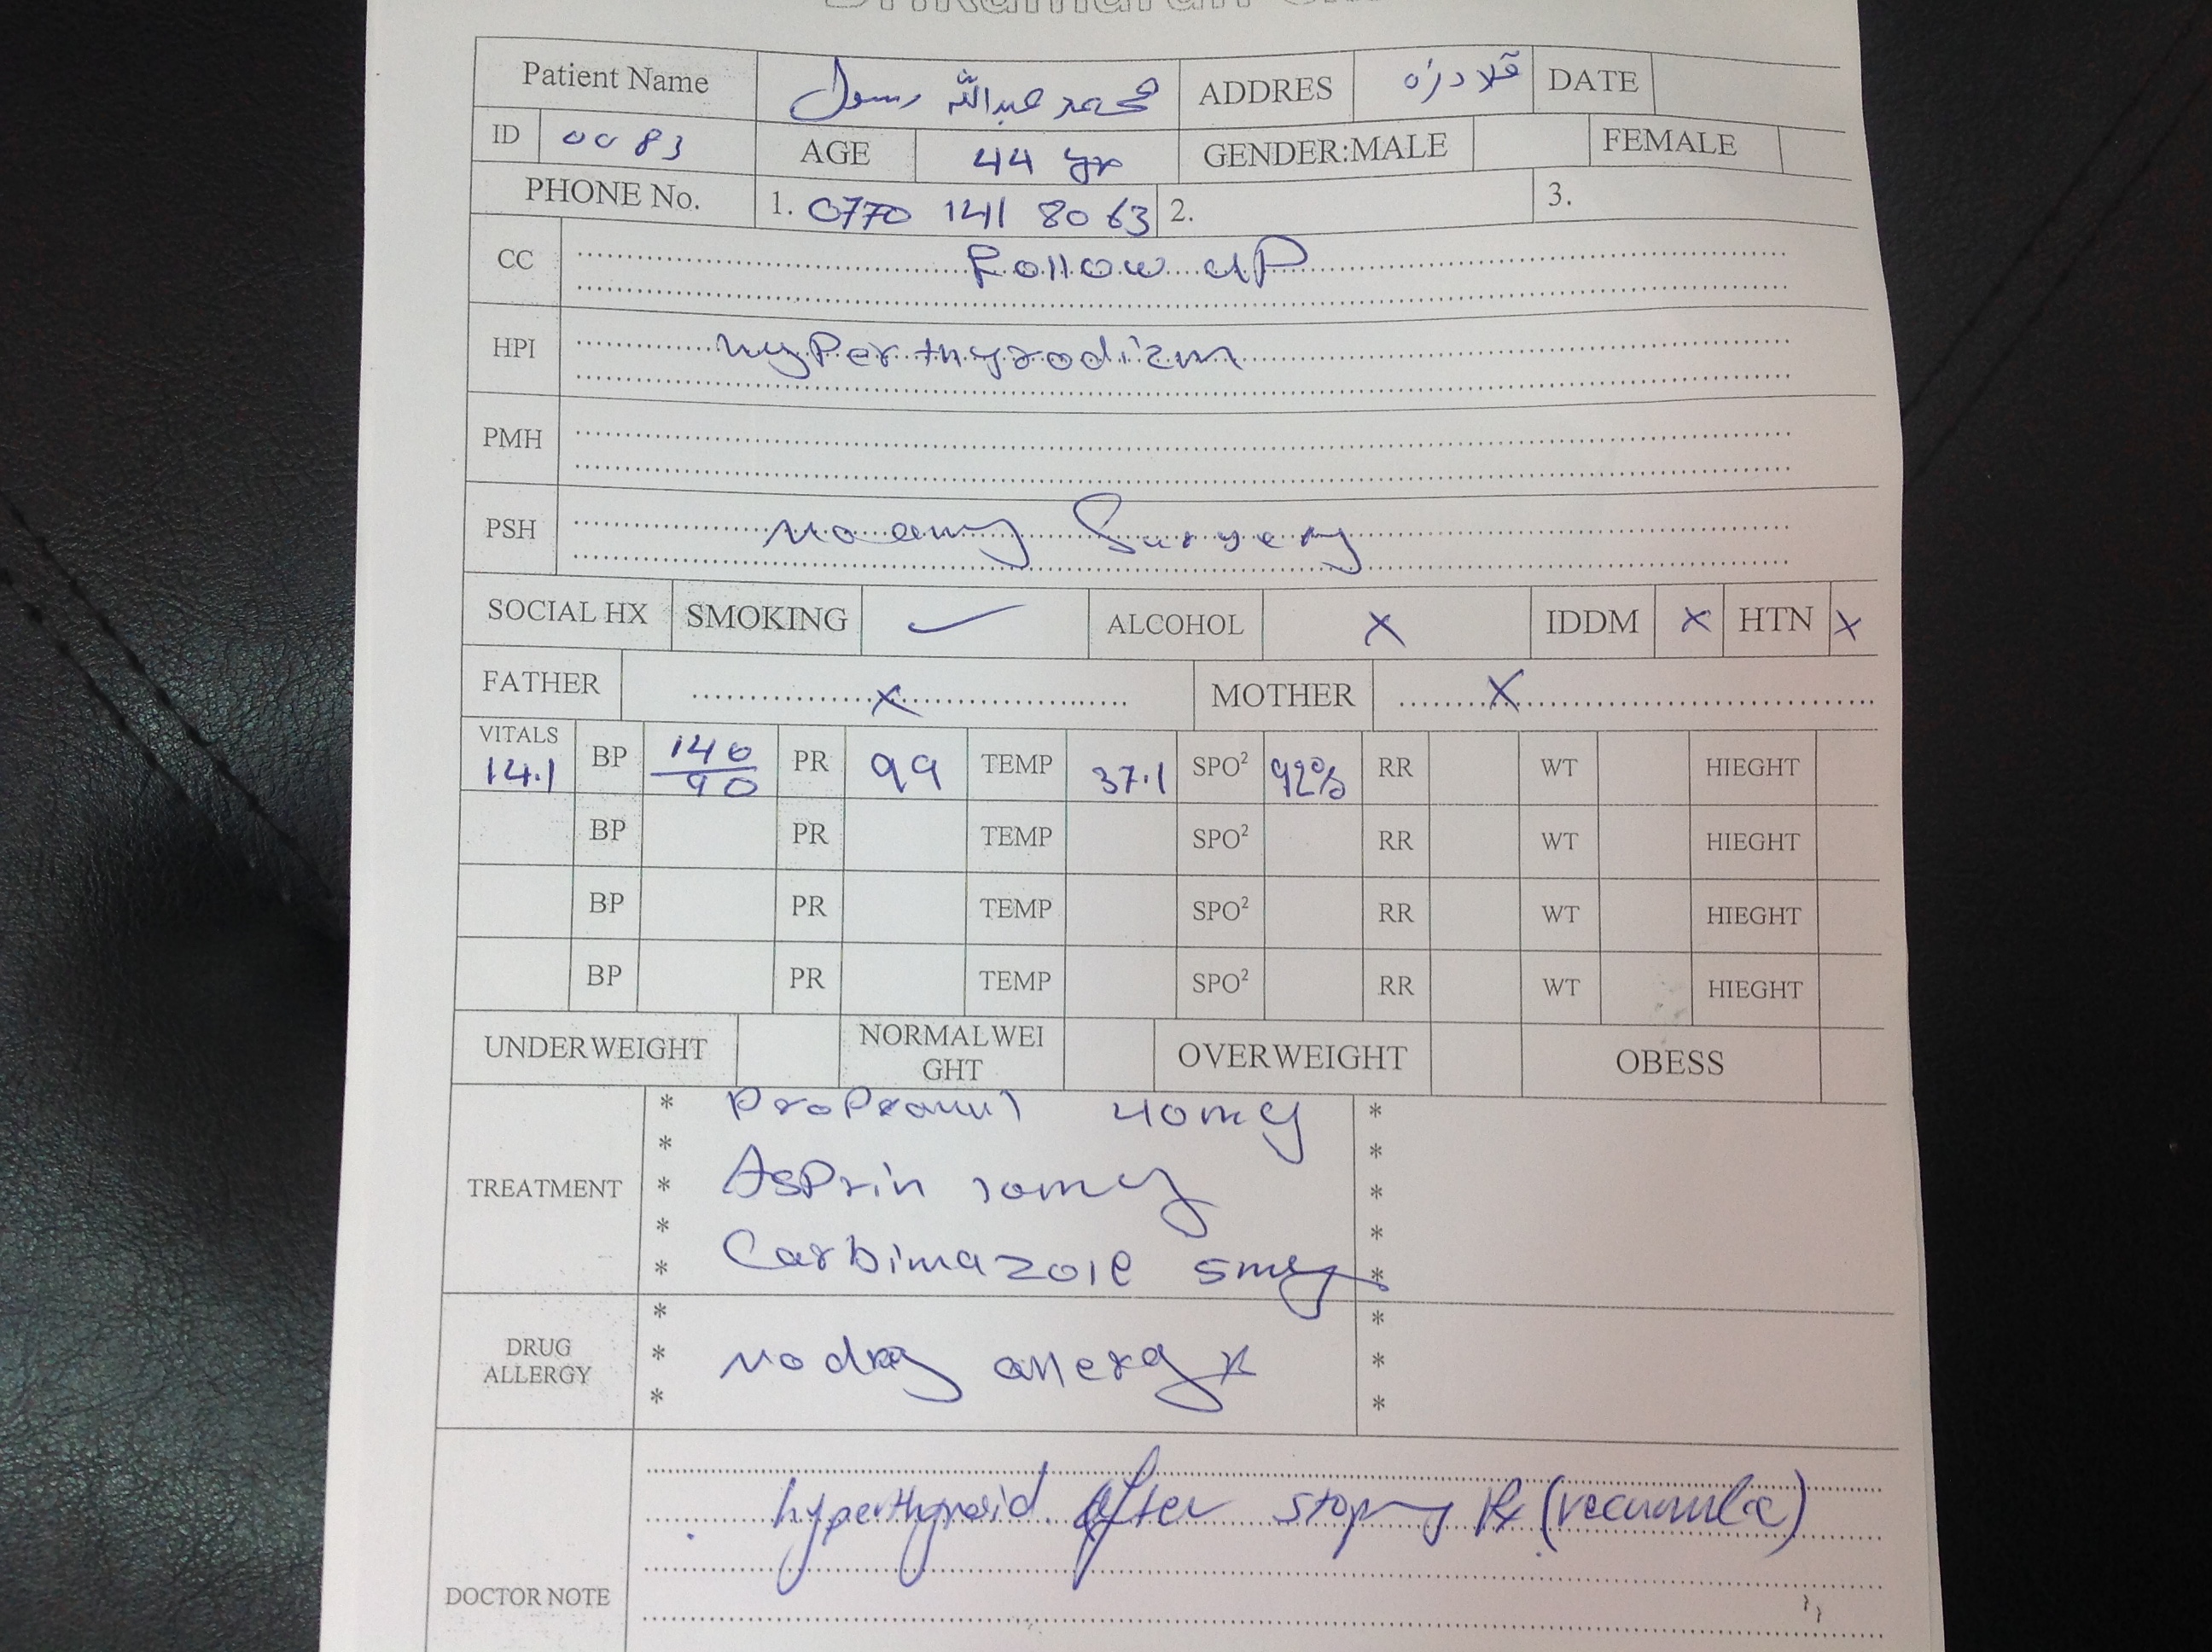 Patient Name محمد عبدالله رسول ADDRES قلادزه DATE
ID 0083 AGE 44 yr GENDER:MALE FEMALE
PHONE No. 1. 0770 141 8063 2. 3.
CC Follow uP
HPI hyPerthyrodizm
PMH
PSH No any Surgery
SOCIAL HX SMOKING ✓ ALCOHOL x IDDM x HTN x
FATHER x MOTHER x
VITALS 14.1 BP 140/90 PR 99 TEMP 37.1 SPO² 92% RR WT HIEGHT
BP PR TEMP SPO² RR WT HIEGHT
BP PR TEMP SPO² RR WT HIEGHT
BP PR TEMP SPO² RR WT HIEGHT
UNDERWEIGHT NORMALWEIGHT OVERWEIGHT OBESS
TREATMENT
* 40mg *
* *
* Asprin 10mg *
* *
* Carbimazole 5mg *
DRUG ALLERGY
* *
* No drug allergy *
* *
DOCTOR NOTE
hyperthyroid. After stoping Rx